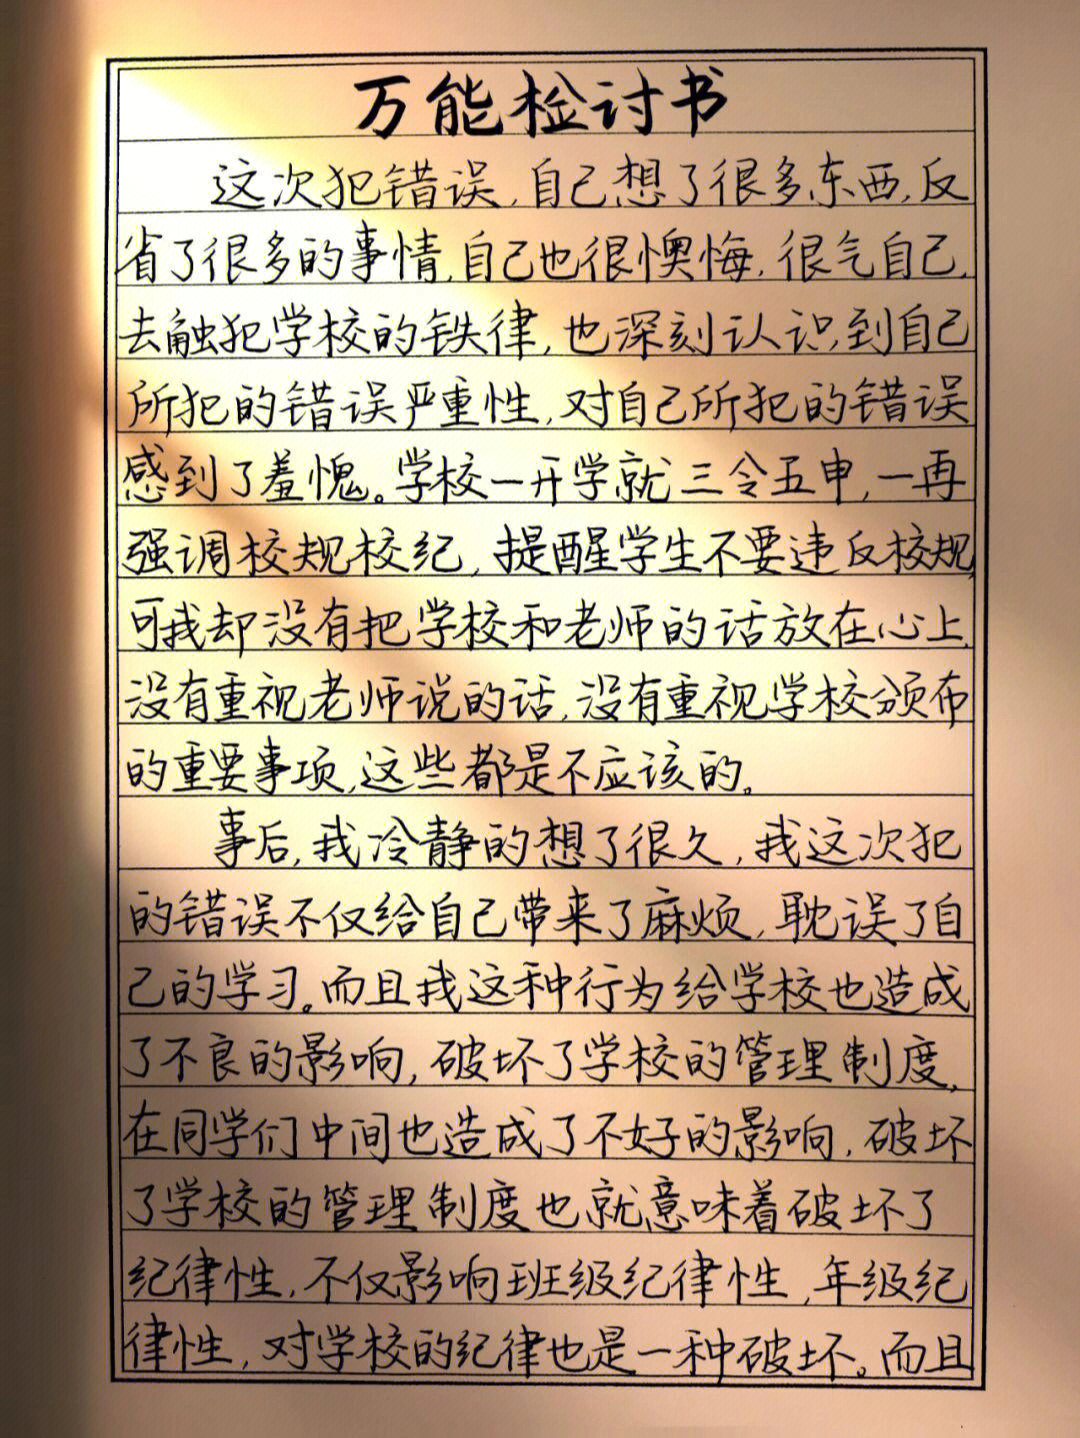 万能检讨书
这次犯错误,自己想了很多东西,反
省了很多的事情,自己也很懊悔,很气自己,
去触犯学校的铁律,也深刻认识到自己
所犯的错误严重性,对自己所犯的错误
感到了羞愧。学校一开学就三令五申,一再
强调校规校纪,提醒学生不要违反校规,
可我却没有把学校和老师的话放在心上,
没有重视老师说的话,没有重视学校颁布
的重要事项,这些都是不应该的。
事后,我冷静的想了很久,我这次犯
的错误不仅给自己带来了麻烦,耽误了自
己的学习。而且我这种行为给学校也造成
了不良的影响,破坏了学校的管理制度,
在同学们中间也造成了不好的影响,破坏
了学校的管理制度也就意味着破坏了
纪律性,不仅影响班级纪律性,年级纪
律性,对学校的纪律也是一种破坏。而且